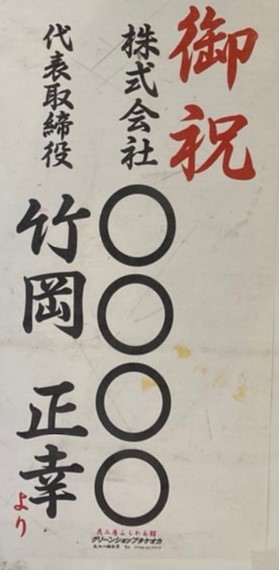 御祝
株式会社
〇〇〇〇
代表取締役
竹岡 正幸
より
グリーンショップタケオカ